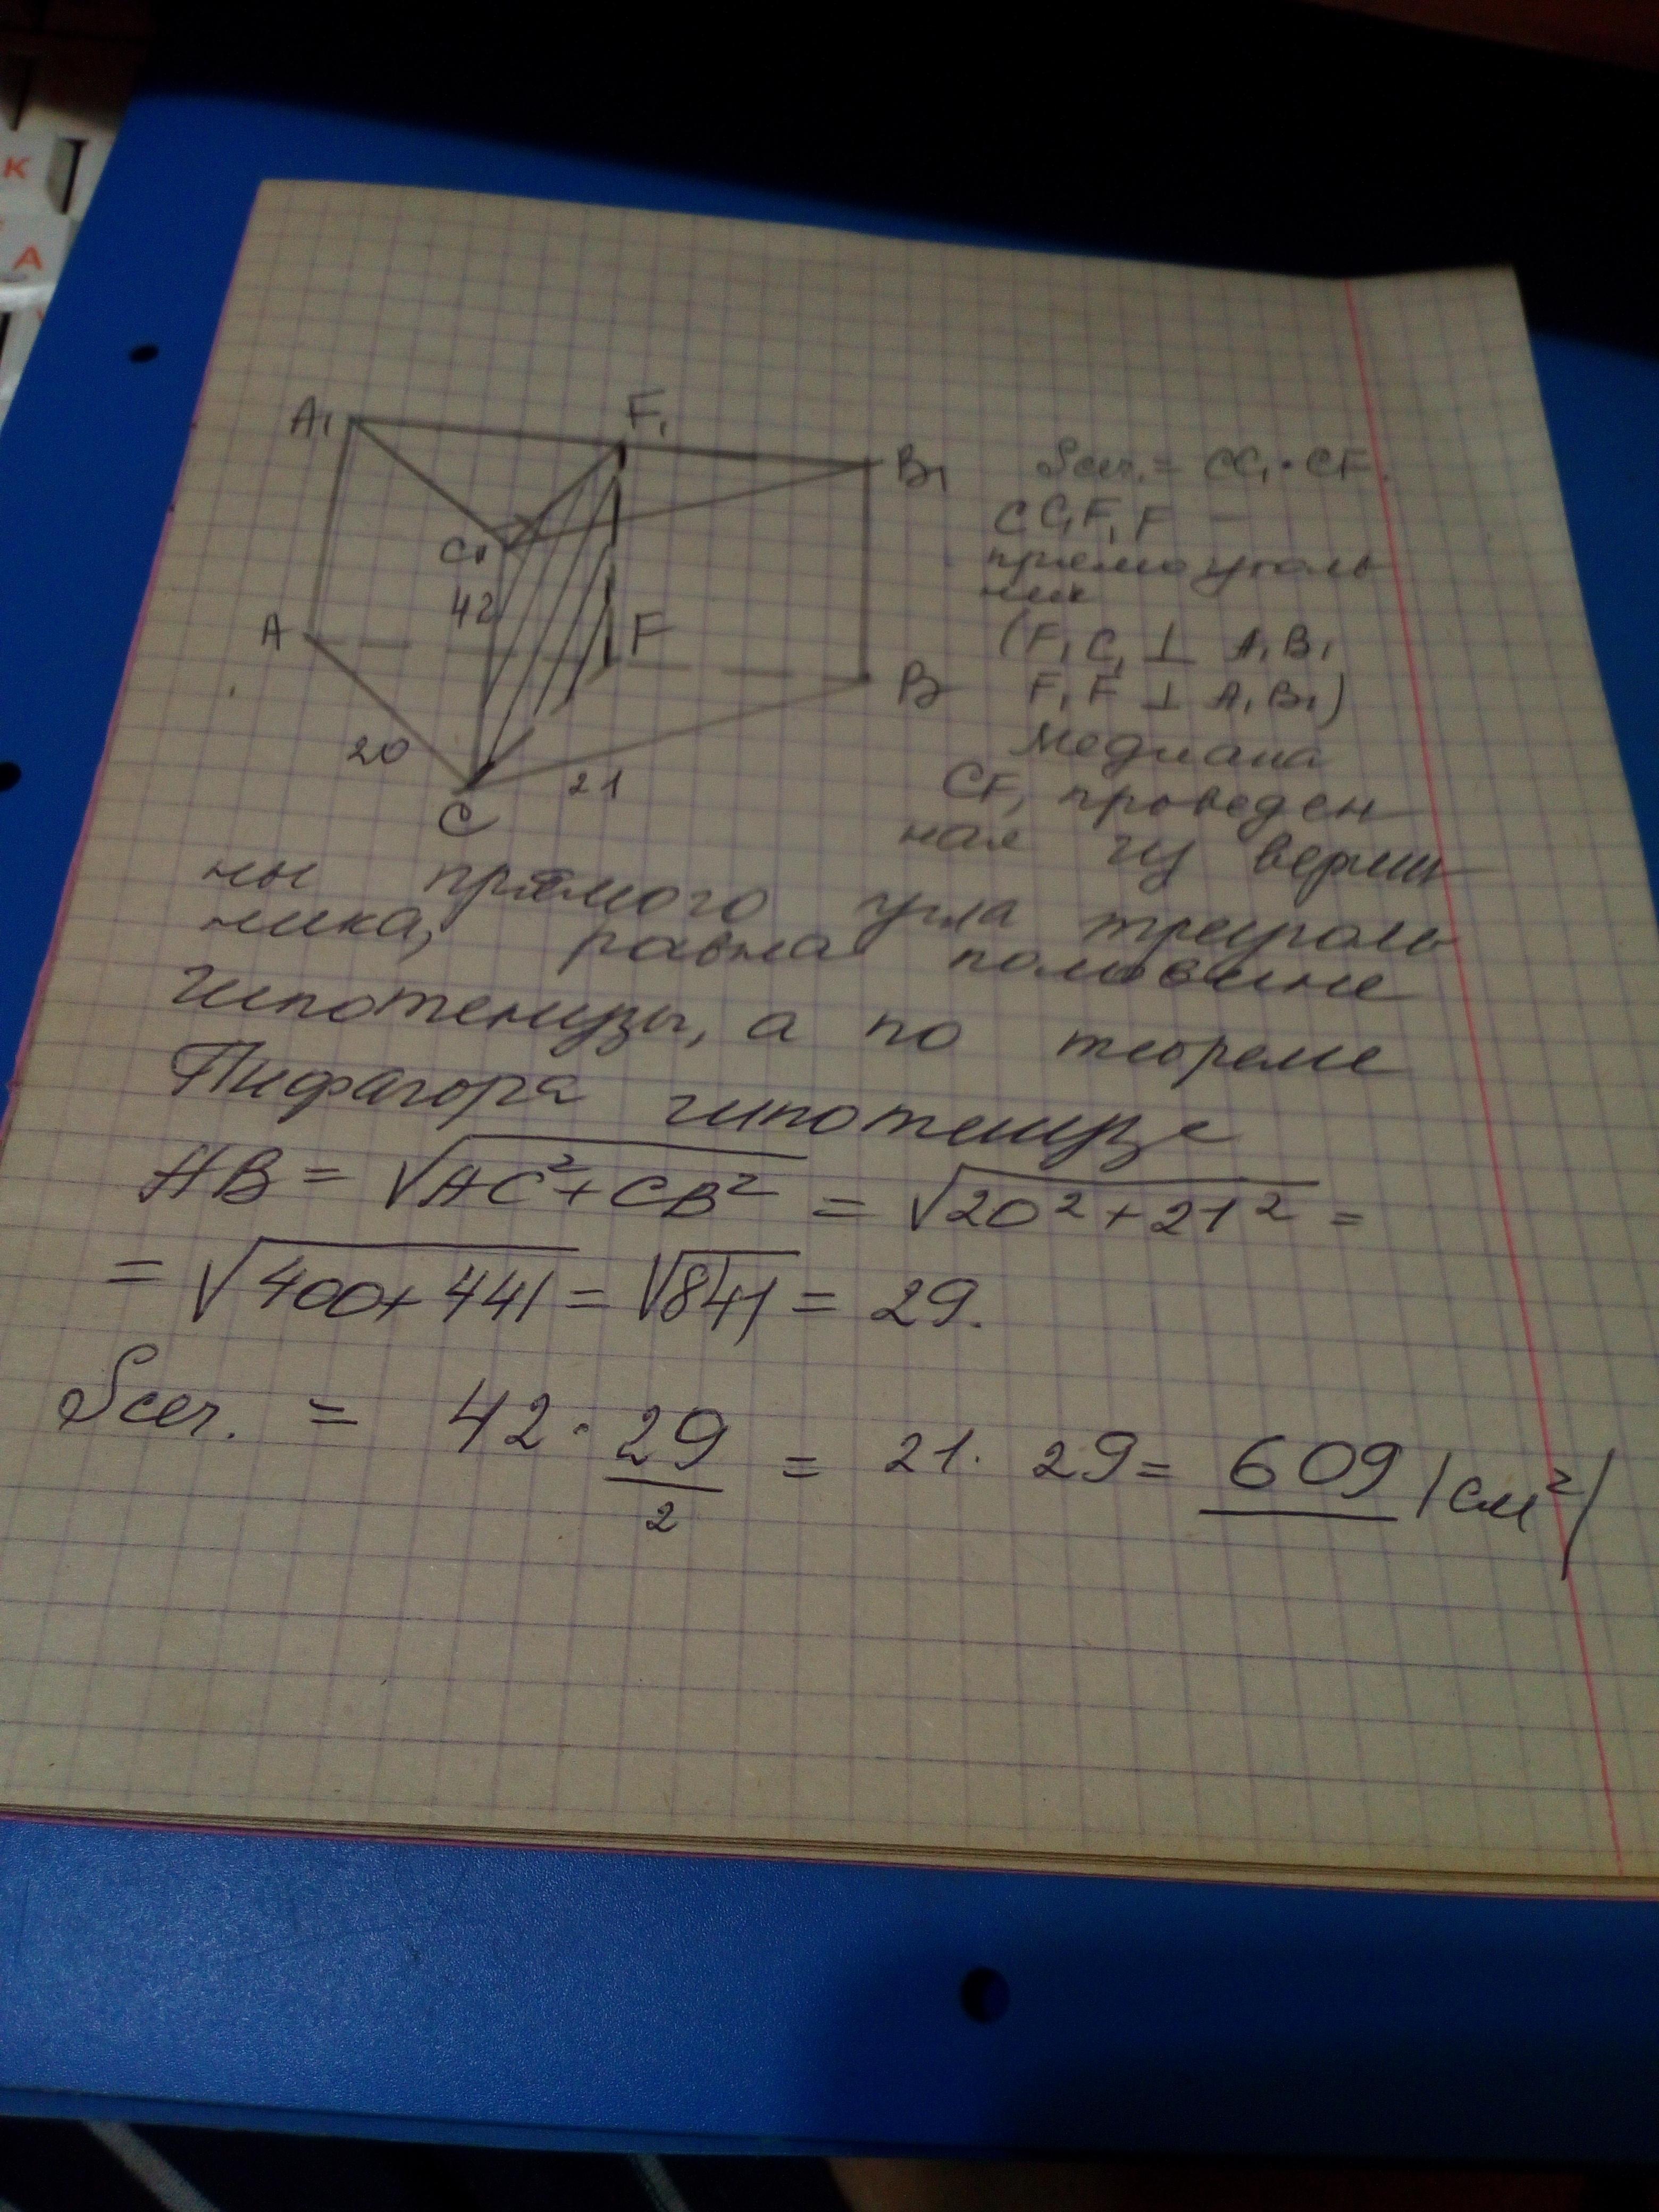 К
А
A₁
F₁
B₁
C₁
42
A
F
B
20
21
C
Sсеч. = CC₁ · CF.
CC₁F₁F —
прямоуголь
ник
(F₁C₁ ⊥ A₁B₁
F₁F ⊥ A₁B₁)
Медиана
CF, проведен
ная из верши
ны прямого угла треуголь
ника, равна половине
гипотенузы, а по теореме
Пифагора гипотенуза
AB = √AC²+CB² = √20²+21² =
= √400+441 = √841 = 29.
Sсеч. = 42 · 29/2 = 21 · 29 = 609 (см²)